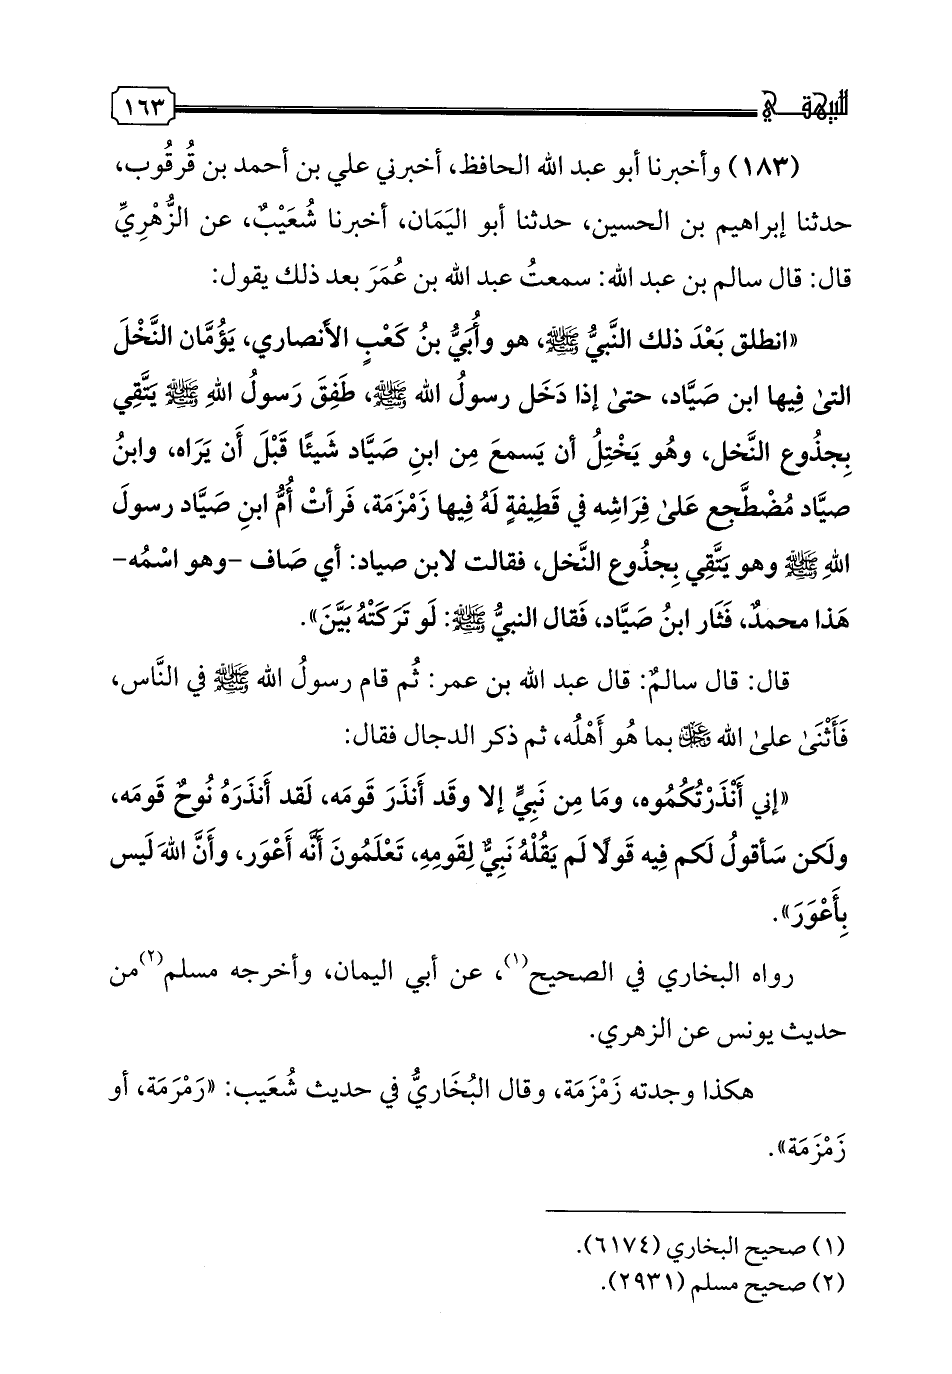 للبيهقي ١٦٣
(١٨٣) وأخبرنا أبو عبد الله الحافظ، أخبرني علي بن أحمد بن قُرقُوب،
حدثنا إبراهيم بن الحسين، حدثنا أبو اليَمَان، أخبرنا شُعَيْبٌ، عن الزُّهْرِيِّ
قال: قال سالم بن عبد الله: سمعتُ عبد الله بن عُمَرَ بعد ذلك يقول:
«انطلق بَعْدَ ذلك النَّبيُّ ﷺ، هو وأُبَيُّ بنُ كَعْبٍ الأنصاري، يَؤُمَّان النَّخْلَ
التىٰ فِيها ابن صَيَّاد، حتىٰ إذا دَخَل رسولُ الله ﷺ، طَفِقَ رَسولُ اللهِ ﷺ يَتَّقِي
بِجذُوع النَّخل، وهُو يَخْتِلُ أن يَسمعَ مِن ابنِ صَيَّاد شَيئًا قَبْلَ أَن يَرَاه، وابنُ
صيَّاد مُضْطَّجِع عَلىٰ فِرَاشِه في قَطِيفةٍ لَهُ فِيها زَمْزَمَة، فَرَأتْ أُمُّ ابنِ صَيَّاد رسولَ
اللهِ ﷺ وهو يَتَّقِي بِجذُوع النَّخل، فقالت لابن صياد: أي صَاف -وهو اسْمُه-
هَذا محمدٌ، فَثَار ابنُ صَيَّاد، فَقال النبيُّ ﷺ: لَو تَرَكَتْهُ بَيَّنَ».
قال: قال سالمٌ: قال عبد الله بن عمر: ثُم قام رسولُ الله ﷺ في النَّاس،
فَأَثْنَىٰ علىٰ الله ﷻ بما هُو أَهْلُه، ثم ذكر الدجال فقال:
«إني أَنْذَرْتُكُمُوه، ومَا مِن نَبِيٍّ إلا وقَد أَنذَر قَومَه، لَقد أَنذَرَهُ نُوحٌ قَومَه،
ولَكن سَأقولُ لَكم فِيه قَولًا لَم يَقُلْهُ نَبِيٌّ لِقَومِهِ، تَعْلَمُونَ أَنَّه أَعْوَر، وأَنَّ اللهَ لَيس
بِأَعْوَرَ».
رواه البخاري في الصحيح(١)، عن أبي اليمان، وأخرجه مسلم(٢)من
حديث يونس عن الزهري.
هكذا وجدته زَمْزَمَة، وقال البُخَاريُّ في حديث شُعَيب: «رَمْرَمَة، أو
زَمْزَمَة».
(١) صحيح البخاري (٦١٧٤).
(٢) صحيح مسلم (٢٩٣١).